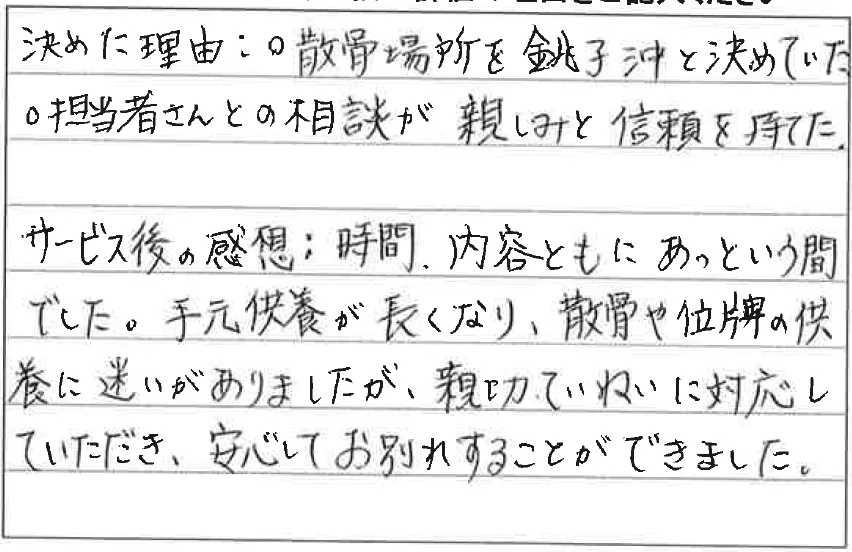 決めた理由：○散骨場所を銚子沖と決めていた
○担当者さんとの相談が親しみと信頼を持てた。
サービス後の感想；時間、内容ともにあっという間
でした。手元供養が長くなり、散骨や位牌の供
養に迷いがありましたが、親切ていねいに対応し
ていただき、安心してお別れすることができました。